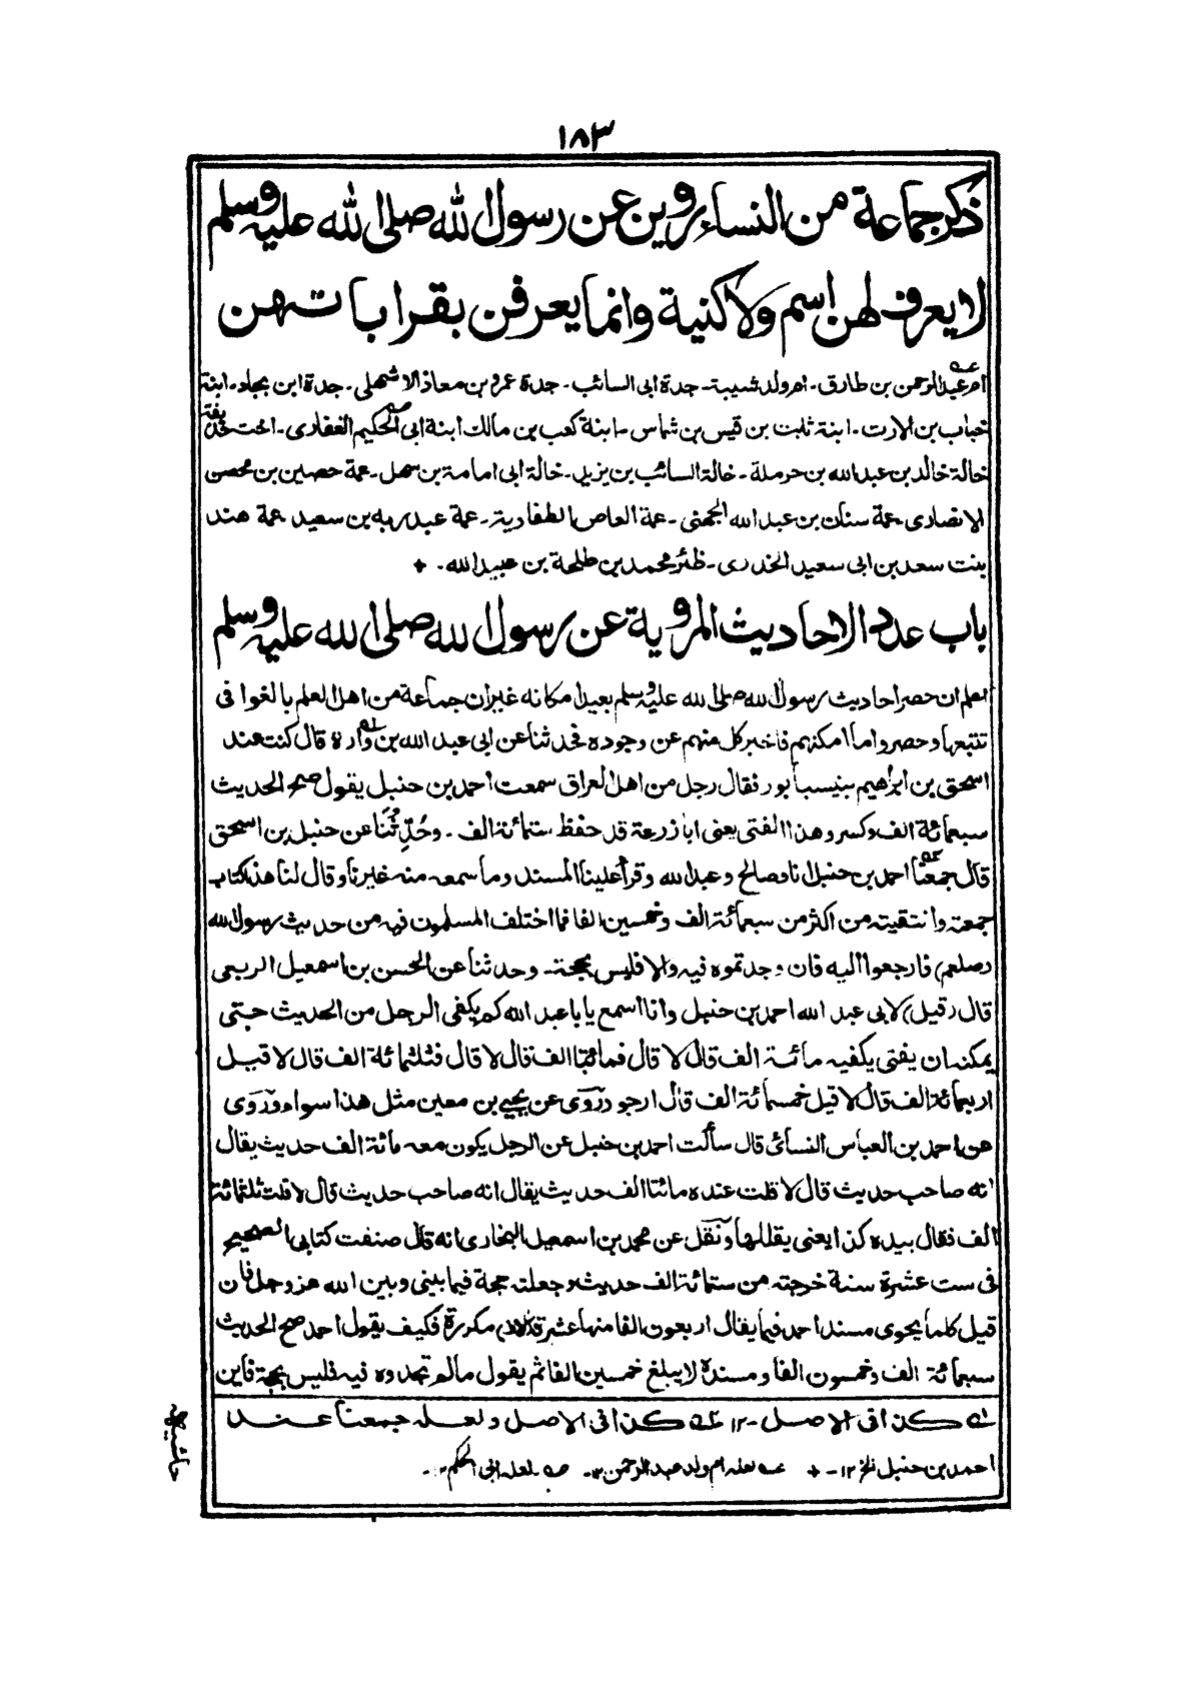 ١٨٣
ذكر جماعة من النساء روين عن رسول الله صلى الله عليه وسلم
لا يعرف لهن اسم ولا كنية وانما يعرفن بقراباتهن
ام عبد الرحمن بن طارق۔ ام ولد شيبة۔ جدة ابى السائب۔ جدة عمرو بن معاذ الاشهلى۔ جدة ابن بجاد۔ ابنة
خباب بن الارت۔ ابنة ثابت بن قيس بن شماس ۔ ابنة كعب بن مالك ابنة ابى الحكيم الغفارى۔ اخت حذيفة
خالة خالد بن عبد الله بن حرملة ۔ خالة السائب بن يزيد۔ خالة ابى امامة بن سهل ۔ عمة حصين بن محصن
الانصارى عمة سنان بن عبد الله الجهنى ۔ عمة العاص الطفاوية۔ عمة عبد ربه بن سعيد عمة هند
بنت سعد بن ابى سعيد الخدرى ۔ ظئر محمد بن طلحة بن عبيد الله ۔ +
باب عدد الاحاديث المروية عن رسول الله صلى الله عليه وسلم
اعلم ان حصر احاديث رسول الله صلى الله عليه وسلم بعيد امكانه غير ان جماعة من اهل العلم بالغوا فى
تتبعها وحصروا ما امكنهم فاخبر كل منهم عن وجوده فحدثنا عن ابى عبد الله بن وارة قال كنت عند
اسحق بن ابراهيم بنيسابور فقال رجل من اهل العراق سمعت احمد بن حنبل يقول صح الحديث
سبعمائة الف وكسر وهذا الفتى يعنى ابا زرعة قد حفظ ستمائة الف ۔ وحُدِّثنا عن حنبل بن اسحق
قال جمعنا احمد بن حنبل انا وصالح وعبد الله وقرأ علينا المسند وما سمعه منه غيرنا وقال لنا هذا كتاب
جمعته وانتقيته من اكثر من سبعمائة الف وخمسين الفا فما اختلف المسلمون فيه من حديث رسول الله
(صلعم) فارجعوا اليه فان وجدتموه فيه والا فليس بحجة۔ وحدثنا عن الحسن بن اسمعيل الربعى
قال (قيل) لابى عبد الله احمد بن حنبل وانا اسمع يا با عبد الله كم يكفى الرجل من الحديث حتى
يمكنه ان يفتى يكفيه مائة الف قال لا قال فمائتا الف قال لا قال فثلثمائة الف قال لا قيل
اربعمائة الف قال لا قيل خمسمائة الف قال ارجو ورَوى عن يحيى بن معين مثل هذا سواء ورَوى
عن احمد بن العباس النسائى قال سألت احمد بن حنبل عن الرجل يكون معه مائة الف حديث يقال
انه صاحب حديث قال لا قلت عنده مائتا الف حديث يقال انه صاحب حديث قال لا قلت ثلثمائة
الف فقال بيده كذا يعنى يقللها ونقل عن محمد بن اسمعيل البخارى انه قال صنفت كتابى الصحيح
فى ست عشرة سنة خرجته من ستمائة الف حديث وجعلته حجة فيما بينى وبين الله عز وجل فان
قيل كلما يحوى مسند احمد فيما يقال اربعون الفا منها عشرة الاف مكررة فكيف يقول احمد صح الحديث
سبعمائة الف وخمسون الفا ومسنده لا يبلغ خمسين الفا ثم يقول ما لم تجدوه فيه فليس بحجة فاين
كذا فى الاصل ۔١٢ كذا فى الاصل ولعله جمعنا عند
احمد بن حنبل الخ ١٢۔ + لعله ام ولد عبد الرحمن ١٢۔ لعله ابى الحكم ١٢۔
حاشيه